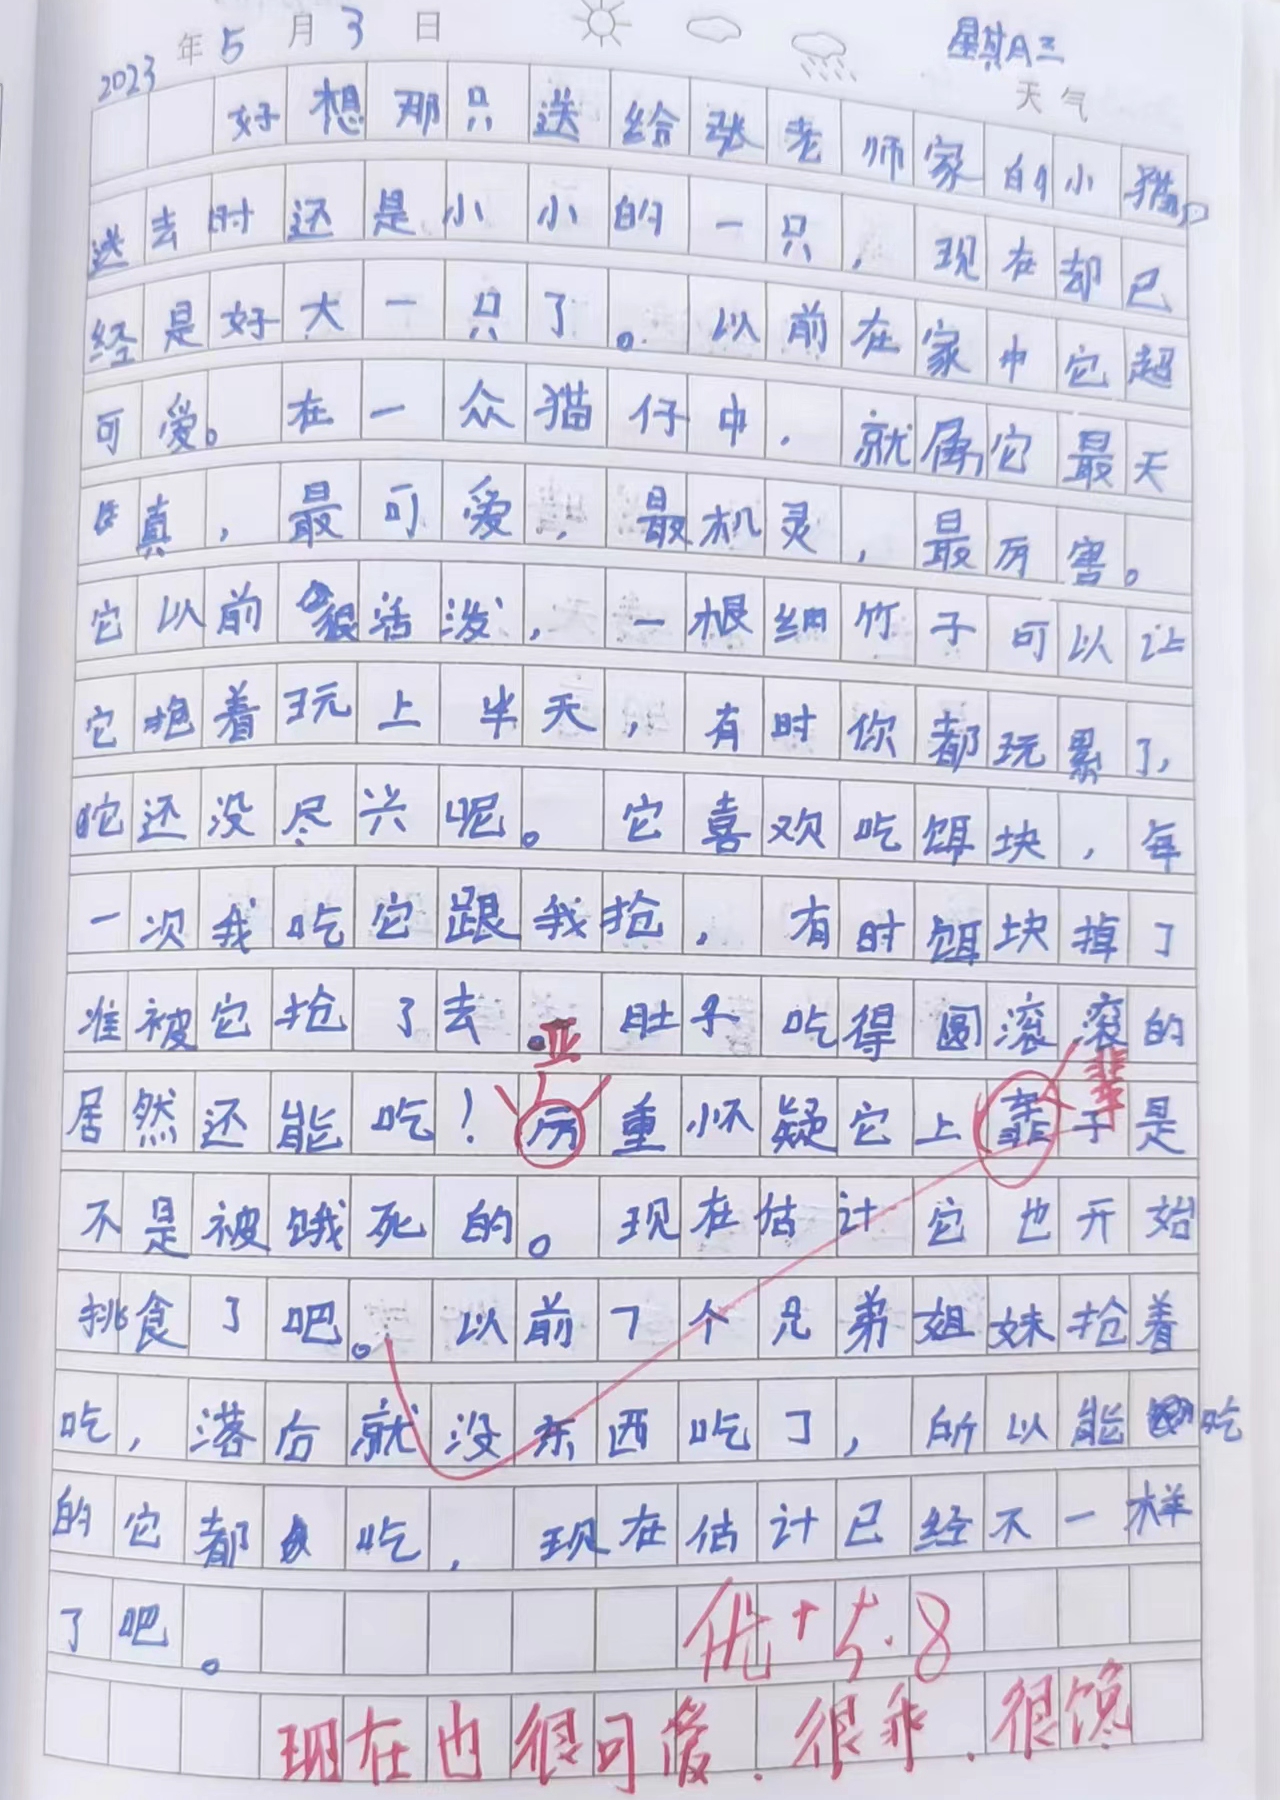 2023年5月3日 星其月三
天气
好想那只送给张老师家的小猫。
送去时还是小小的一只，现在却已
经是好大一只了。以前在家中它超
可爱。在一众猫仔中，就属它最天
真，最可爱，最机灵，最厉害。
它以前很活泼，一根细竹子可以让
它抱着玩上半天，有时你都玩累了，
它还没尽兴呢。它喜欢吃饵块，每
一次我吃它跟我抢，有时饵块掉了
准被它抢了去。肚子吃得圆滚滚的
亚
居然还能吃！厉重怀疑它上辈子是
辈
不是被饿死的。现在估计它也开始
挑食了吧。以前7个兄弟姐妹抢着
吃，落后就没东西吃了，所以能吃
的它都吃，现在估计已经不一样
了吧。
优+5.8
现在也很可爱.很乖.很馋